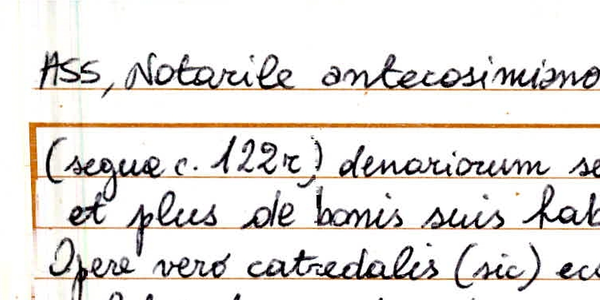 ASS, Notarile antecosimiano
(segue c. 122r) denariorum se
et plus de bonis suis hab
Opere vero catredalis (sic) ecc